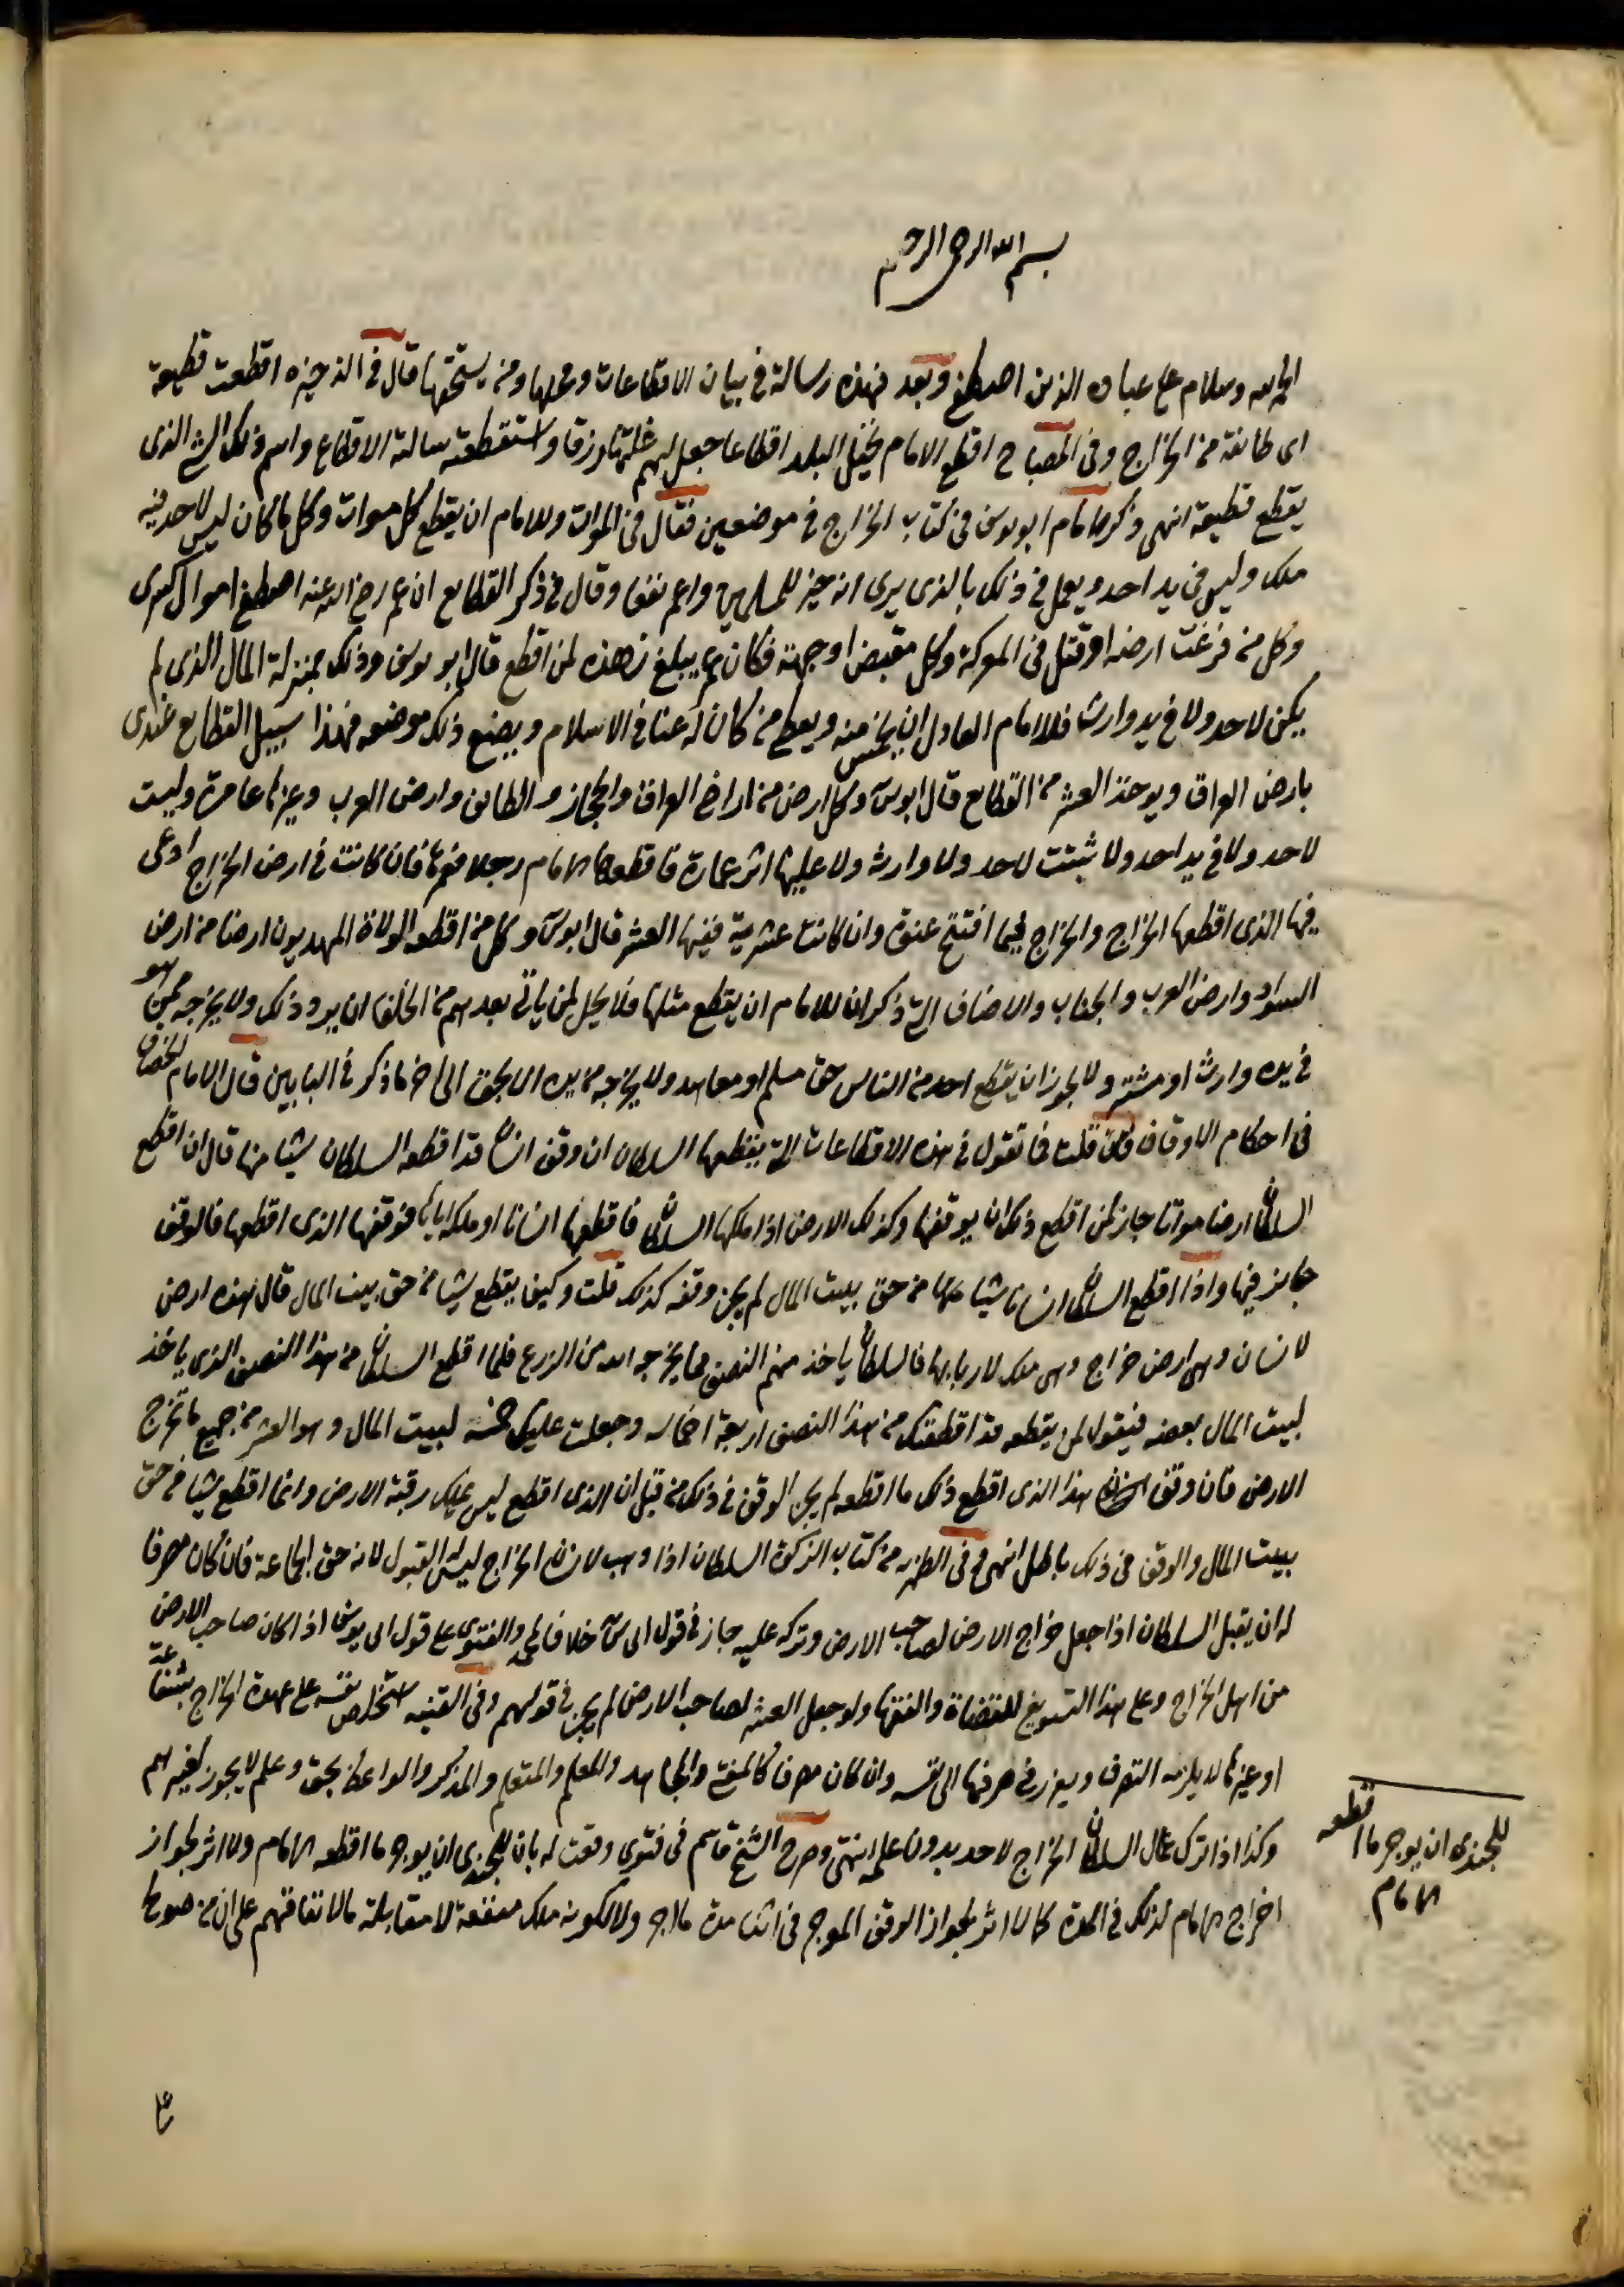 بسم الله الرحمن الرحيم
الحمد لله وسلام على عباده الذين اصطفى وبعد فهذه رسالة في بيان الاقطاعات ومحلها ومن يستحقها قال في الذخيره اقطعت قطيعة
اى طائفة من الخراج وفي المصباح اقطع الامام الجند البلد اقطاعا جعل لهم غلتها رزقا واستقطعته سالته الاقطاع واسم ذلك الشئ الذى
يقطع قطيعة انتهى وذكر الامام ابو يوسف في كتاب الخراج في موضعين فقال في الموات وللامام ان يقطع كل موات وكل ما كان ليس لاحد فيه
ملك وليس في يد احد ويعمل في ذلك بالذى يرى انه خير للمسلمين واعم نفعا وقال في ذكر القطايع ان عمر رضي الله عنه اصطفى اموال كسرى
وكل من فرغت ارضه او قتل في المعركة وكل مغيض او جهة فكان عمر يقطع من هذه لمن اقطع قال ابو يوسف وذلك بمنزلة المال الذى لم
يكن لاحد ولا في يد وارث فللامام العادل ان يجيز منه ويعطى من كان له عنا في الاسلام ويضع ذلك موضعه فهذا سبيل القطايع عندى
بارض العراق ويوخذ العشر من القطايع قال ابو يوسف وكل ارض من اراضي العراق والحجاز والطائف وارض العرب وغيرها عامرة وليست
لاحد ولا في يد احد ولا ثبتت لاحد ولا وارث ولا عليها اثر عمارة فاقطعها الامام رجلا فعمرها فان كانت في ارض الخراج ادى
فيها الذى اقطعها الخراج والخراج فيما افتتح عنوة وان كانت عشرية ففيها العشر قال ابو يوسف وكل من اقطعه الولاة المهديون ارضا من ارض
السواد وارض العرب والجبال والاصناف التى ذكر ان للامام ان يقطع مثلها فلا يحل لمن ياتى بعدهم من الخلفا ان يرد ذلك ولا يخرجه ممن هو
في يده وارث او مشتر ولا يجوز ان يقطع احد من الناس حق مسلم او معاهد ولا يخرجه من يده الا بحق الى اخر ما ذكر في البابين قال الامام الخصاف
في احكام الاوقاف فان قلت فما تقول في هذه الاقطاعات التى يقطعها السلطان ان وقف انسان قد اقطعه السلطان شيئا منها قال ان اقطع
السلطان ارضا مواتا جاز لمن اقطع ذلك ان يوقفها وكذلك الارض اذا ملكها السلطان فاقطعها انسانا او ملكه اياها فوقفها الذى اقطعها فالوقف
جايز فيها واذا اقطع السلطان انسانا شيئا من حق بيت المال لم يجز وقفه كذلك قلت وكيف يقطع شيئا من حق بيت المال قال هذه ارض
لانسان وهى ارض خراج وهى ملك لاربابها فالسلطان ياخذ منهم النصف مما يخرجه الله من الزرع فلما اقطع السلطان من هذا النصف الذى ياخذ
لبيت المال بعضه فيقول لمن يقطعه قد اقطعتك من هذا النصف اربعة اخماسه وجعلت عليك خمسه لبيت المال وهو العشر من جميع ما تخرج
الارض فان وقف انسان هذا الذى اقطع ذلك ما اقطعه لم يجز الوقف في ذلك من قبل ان الذى اقطع ليس يملك رقبة الارض وانما اقطع شيئا من حق
بيت المال والوقف في ذلك باطل انتهى وفى الظهيريه من كتاب الزكوة السلطان اذا وهب لانسان الخراج ليس له القبول لانه حق الجماعة فان كان مصرفا
له ان يقبل السلطان اذا جعل خراج الارض لصاحب الارض وتركه عليه جاز في قول ابى يوسف خلافا لمحمد والفتوى على قول ابى يوسف اذا كان صاحب الارض
من اهل الخراج وعلى هذا التسويغ للقضاة والفقها ولو جعل العشر لصاحب الارض لم يجز في قولهم وفى القنيه استخلص نفسه على عهدة الخراج بشفاعة
او غيرها لا يلزمه التصرف ويعزر في صرفها الى نفسه وان كان مصرفا كالمفتى والمجاهد والمعلم والمتعلم والمذكر والواعظ بحق وعلم لا يجوز لغيرهم
وكذا اذا ترك عمال السلطان الخراج لاحد بدون علمه انتهى وصرح الشيخ قاسم في فتوى رفعت له بان للجندى ان يوجر ما اقطعه الامام ولا اثر لجواز
اخراج الامام لذلك في المدة كما لا اثر لجواز الوقف الموجر في اثنا مدة ما اجر ولا لكونه ملك منفعة لا مقابلة مال لاتفاقهم على ان من صولح
للجندى ان يوجر ما اقطعه
الامام